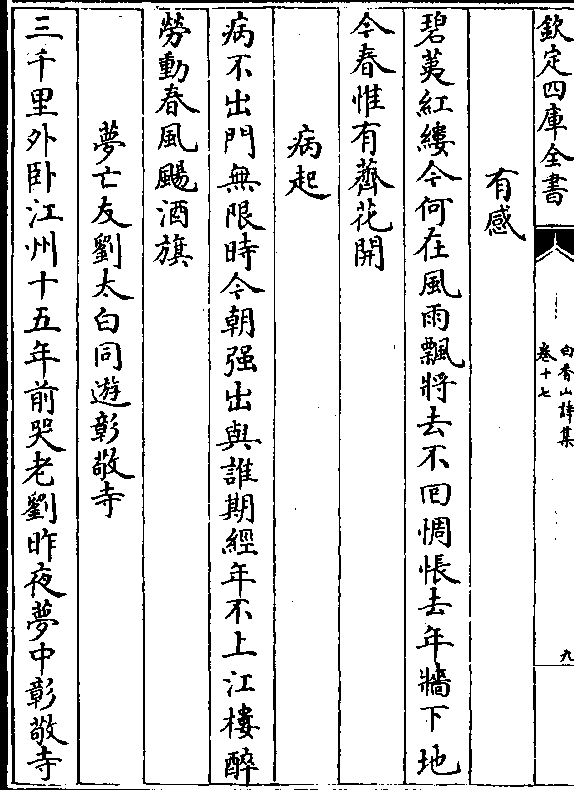 欽定四庫全書
白香山詩集
卷十七
九
有感
碧荑紅縷今何在風雨飄將去不囘惆悵去年牆下地
今春惟有薺花開
病起
病不出門無限時今朝强出與誰期經年不上江樓醉
勞動春風颺酒旗
夢亡友劉太白同遊彰敬寺
三千里外卧江州十五年前哭老劉昨夜夢中彰敬寺